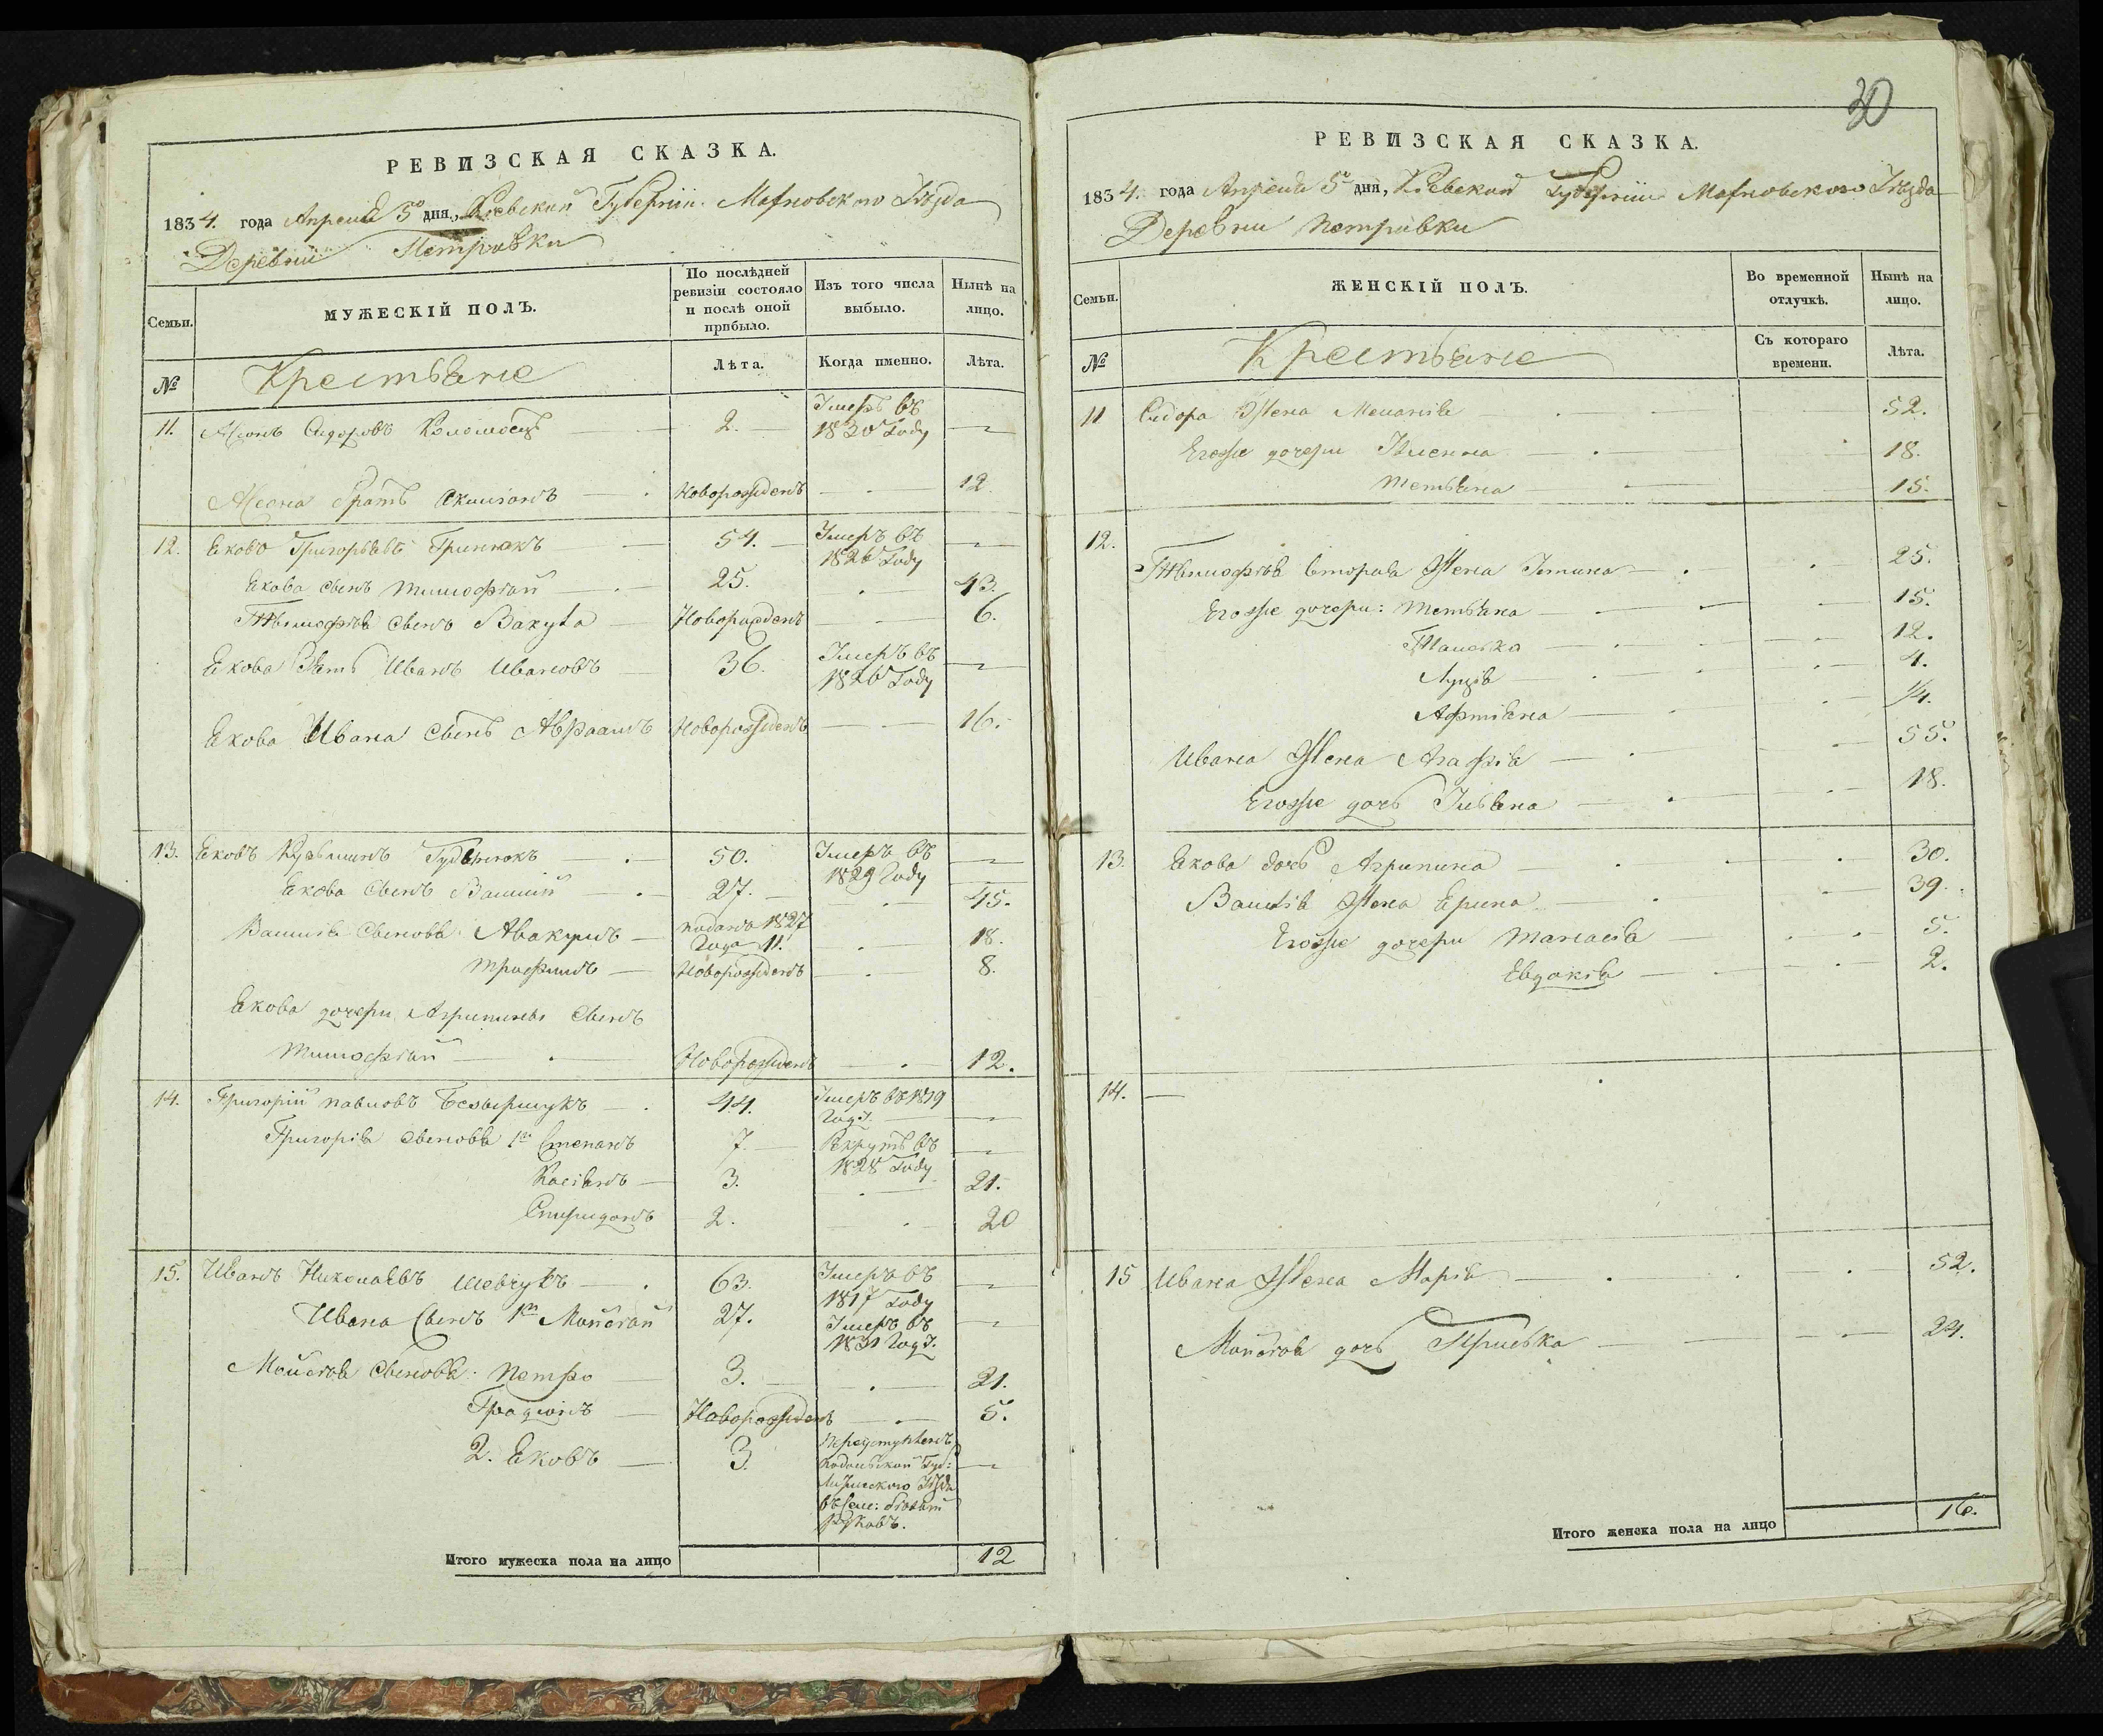 РЕВИЗСКАЯ СКАЗКА.
1834. года Апреля 5 дня, Кіевской Губерніи Махновского Уѣзда
Деревни Петровки
Семьи. МУЖЕСКІЙ ПОЛЪ. По послѣдней ревизіи состояло и послѣ оной прибыло. Изъ того числа выбыло. Нынѣ на лицо.
№ Крестьяне Лѣта. Когда именно. Лѣта.
11. Сидоровъ 2. Умеръ въ
1830 Году
братъ Новорожденъ 12
12. Яковъ Григорьевъ Гринюкъ 54. Умеръ въ
1826 Году
Якова сынъ Тимофѣй 25. 43.
сынъ Вакула Новорожденъ 6.
Якова Зять Иванъ Ивановъ 36. Умеръ въ
1826 Году
Якова Ивана сынъ Авраамъ Новорожденъ 16.
13. Яковъ Кузьминъ 50. Умеръ въ
1829 Году
Якова сынъ Василій 27. 45.
Василія сыновья Авакумъ поданъ 1827
Года 11. 18.
Трофимъ Новорожденъ 8.
Якова дочери Агрипины сынъ
Тимофѣй Новорожденъ 12.
14. Григорій Павловъ 44. Умеръ въ 1819
Годѣ.
Григорія сыновья 1й Степанъ 7. Рекрутъ въ
1828 Году
Касіянъ 3. 21.
Спиридонъ 2. 20
15. Иванъ Николаевъ Шевчукъ 63. Умеръ въ
1817 Году
Ивана Сынъ 1й Мойсей 27. Умеръ въ
1831 Годѣ.
Мойсея сыновья: Петро 3. 21.
Новорожденъ 5.
2. Яковъ 3.
Подольской Губ:
Уѣзда
Итого мужеска пола на лицо 12
30
РЕВИЗСКАЯ СКАЗКА.
1834. года Апреля 5 дня, Кіевской Губерніи Махновского Уѣзда
Деревни Петровки
Семьи. ЖЕНСКІЙ ПОЛЪ. Во временной отлучкѣ. Нынѣ на лицо.
№ Крестьяне Съ котораго времени. Лѣта.
11 Сидора Жена Меланія 52.
Егоже дочери 18.
Тетьяна 15.
12. вторая Жена Устина 25.
Егоже дочери: Тетьяна 15.
12.
Луція 4.
1/4.
Ивана Жена Агафія 55.
Егоже дочь Ульяна 18.
13. Якова дочь Агрипина 30.
Василія Жена Ерина 39.
Егоже дочери 5.
Евдокія 2.
14.
15 Ивана Жена Марія 52.
Мойсея дочь Приська 24.
Итого женска пола на лицо 16.